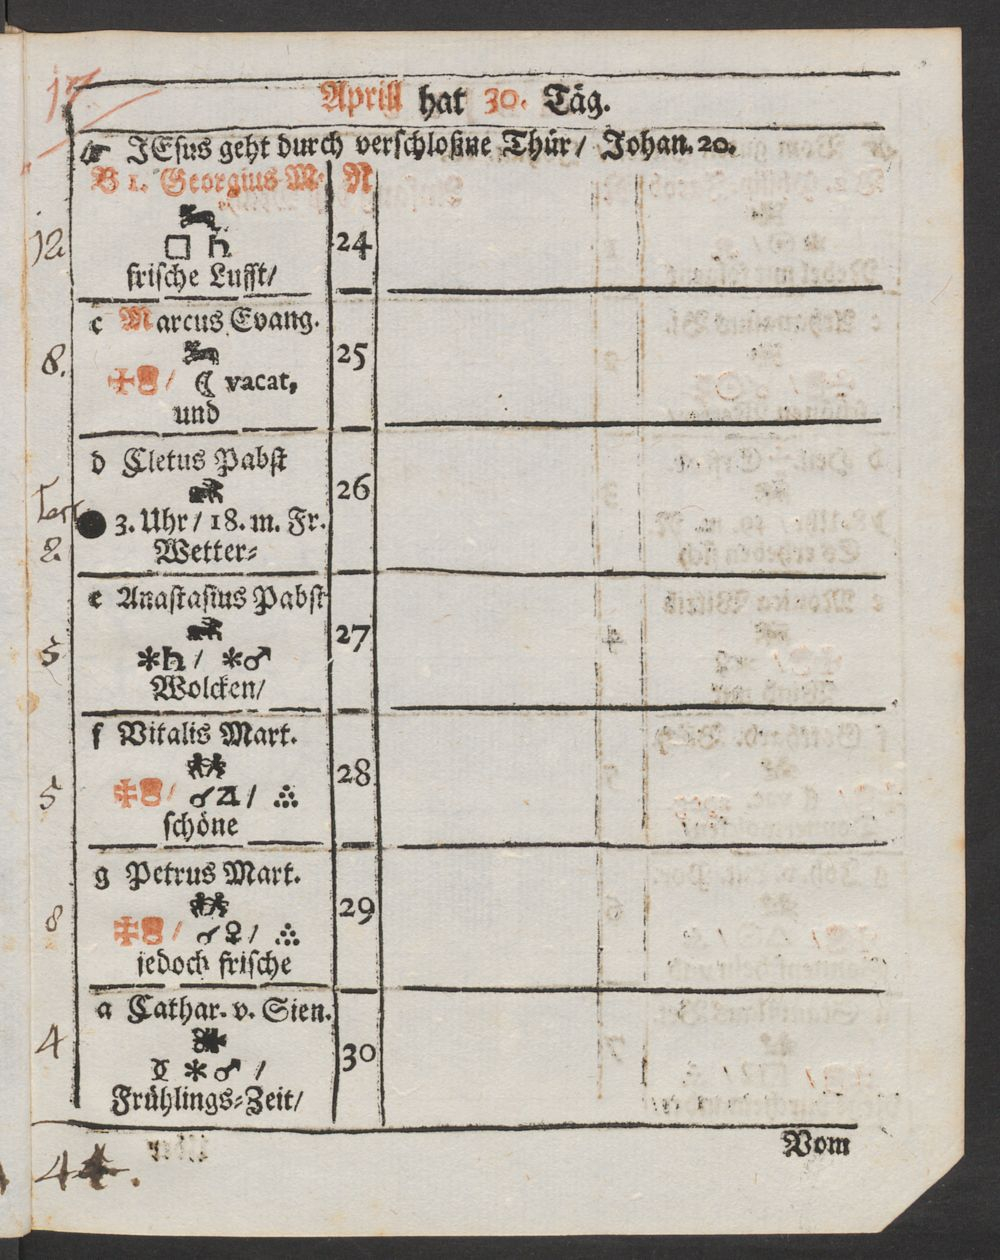 17.
Aprill hat 30. Täg.
☞ JEsus geht durch verschloßne Thür / Johan. 20.
B 1. Georgius M. N
12
□ ♄
24
frische Lufft/
c Marcus Evang.
8.
25
/ ☾ vacat,
und
d Cletus Pabst
26
● 3. Uhr / 18. m. Fr.
2.
Wetter⸗
e Anastasius Pabst
27
5
✻♄ / ✻♂
Wolcken/
f Vitalis Mart.
28
5
/ ☌♃ / ஃ
schöne
g Petrus Mart.
29
8
/ ☌♀ / ஃ
jedoch frische
a Cathar. v. Sien.
4
30
☿ ✻♂ /
Frühlings⸗Zeit/
Vom
44.